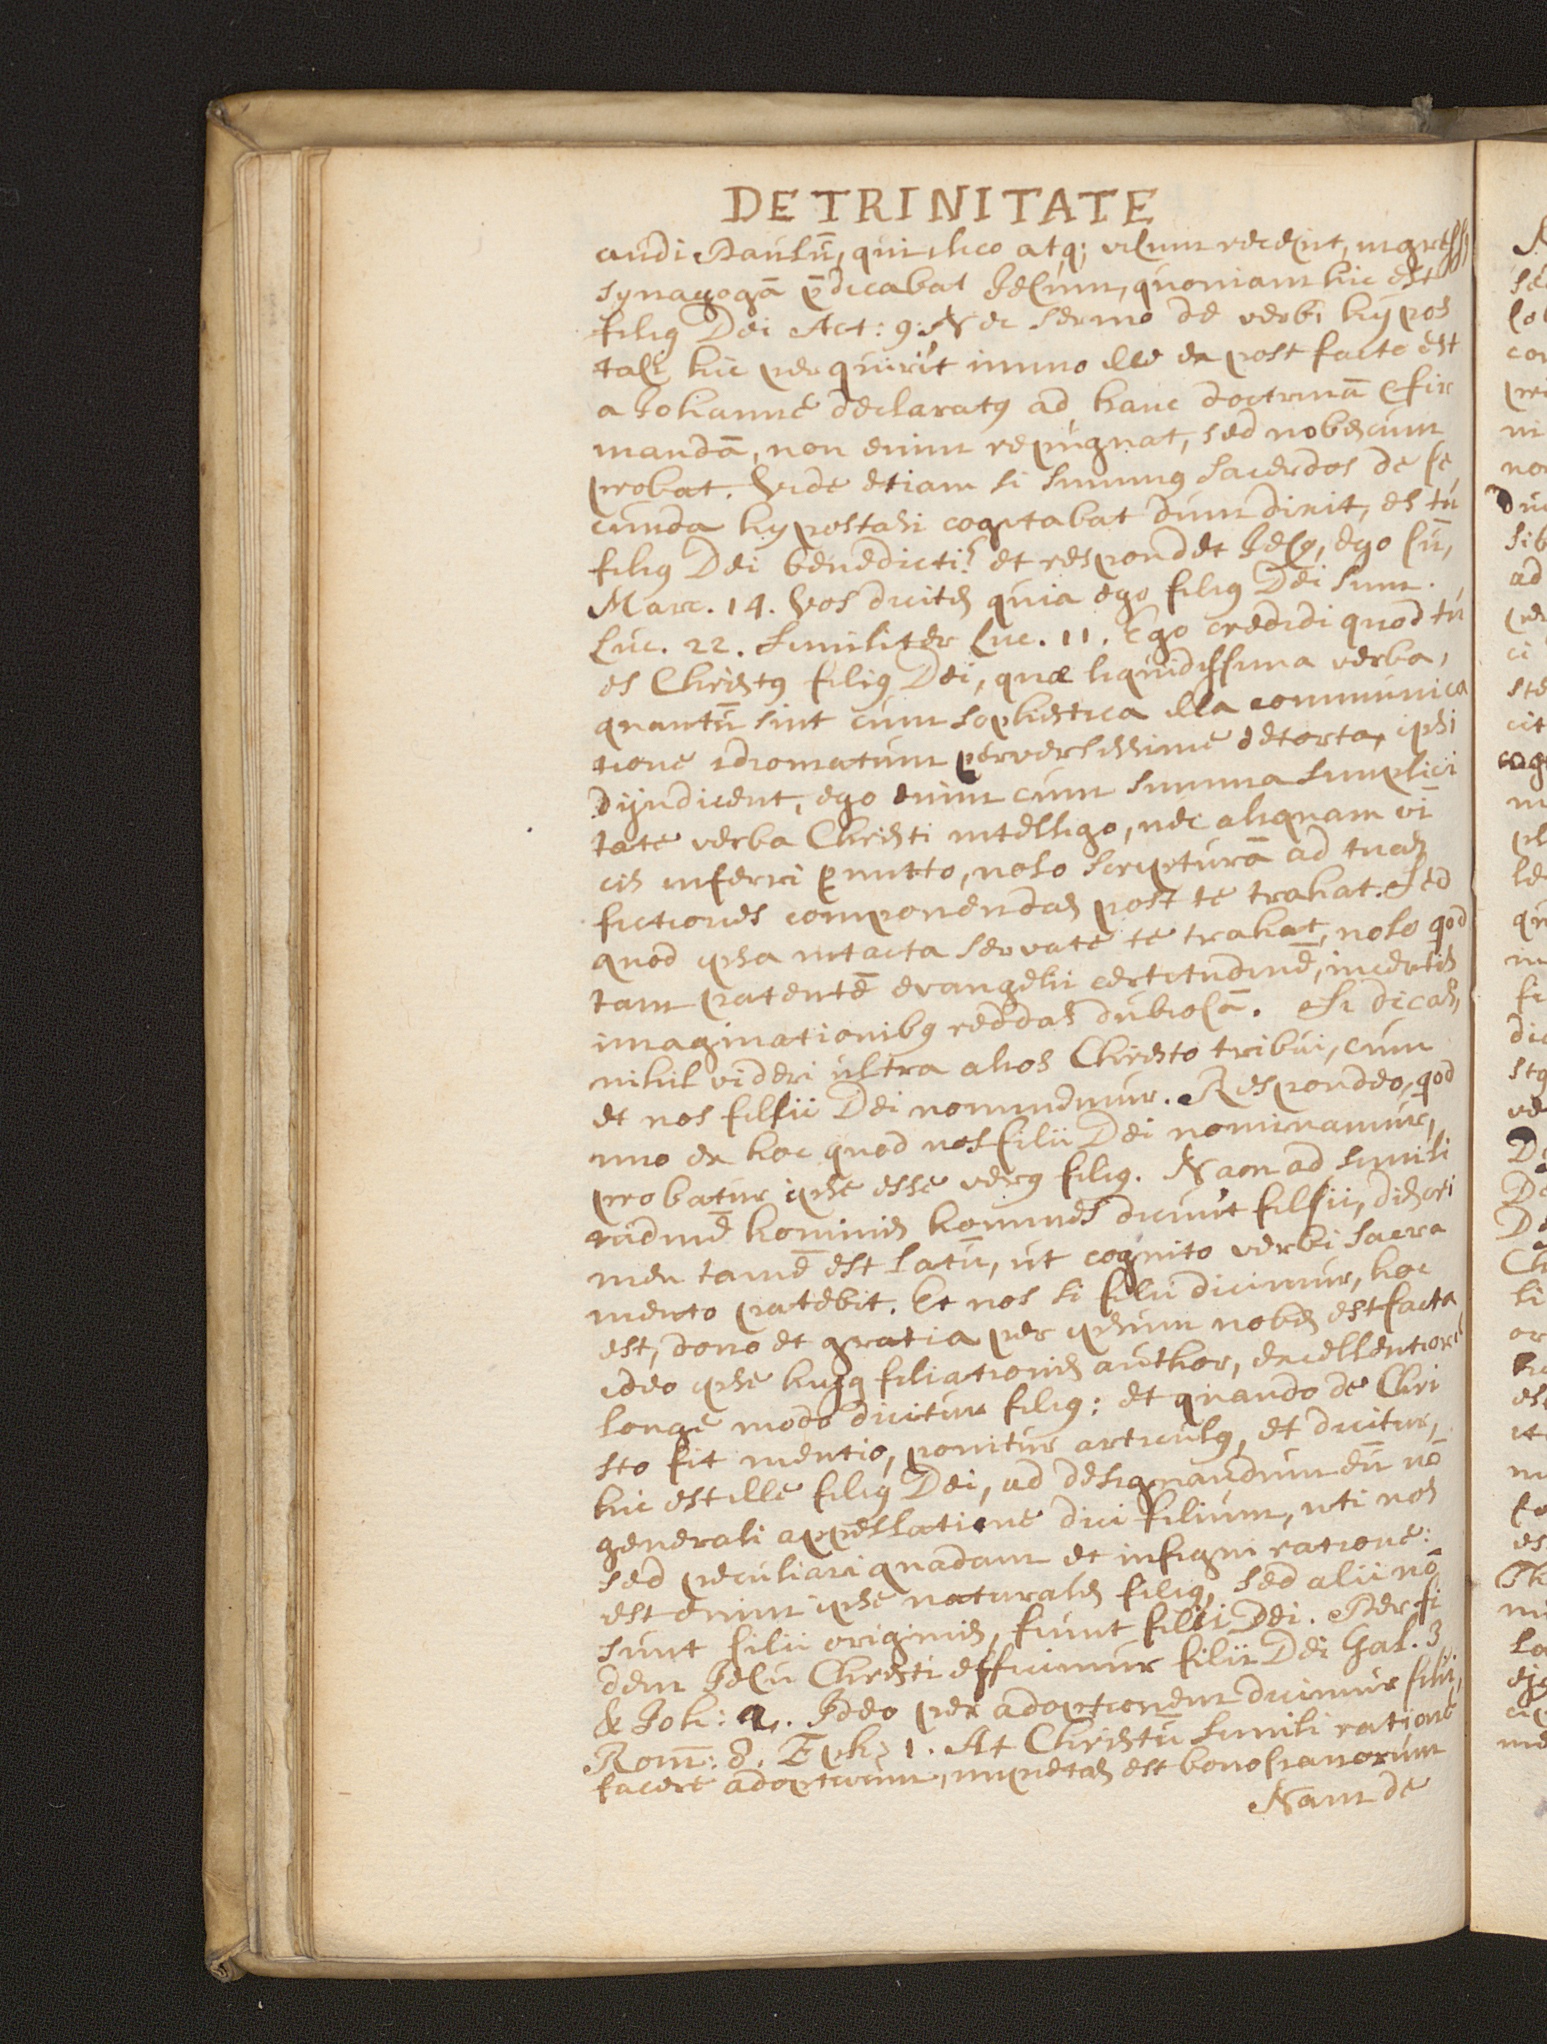 DE TRINITATE
audi Paulū, qui ilico atq; visum recepit, ingressꝰ
synagogā p̄dicabat Jesum, quoniam hic est
filiꝰ Dei Act: 9: Nec sermo de verbi hypos
tasi hic per quirit immo ille ex post facto est
a Johanne declaratꝰ ad hanc doctrinā cfir
mandā, non enim repugnat, sed nobiscum
probat. Vide etiam si summꝰ sacerdos de se
cunda hypostasi cogitabat dum dixit, es tu
filiꝰ Dei benedicti? et respondet Jesꝰ, ego sū,
Marc. 14. Vos dicitis quia ego filiꝰ Dei sum.
Luc. 22. Similiter Luc. 11. Ego credidi quod tu
es Christꝰ filiꝰ Dei, quæ liquidissima verba,
quantū sint cum sophistica illa communica
tione idiomatum perversissime detorta, ipsi
dijudicent, ego enim cum summa simplici
tate verba Christi intelligo, nec aliquam vī
eis inferri ꝑmitto, nolo scripturā ad tuas
fictiones componendas post te trahat. Sed
quod ipsa intacta servate te trahat, nolo qod
tam patentē evangelii certitudinē, incertis
imaginationibꝰ reddas dubiosā. Si dicas,
nihil videri ultra alios Christo tribui, cum
et nos filii Dei nominemur. Respondeo, qod
imo ex hoc quod nos filii Dei nominamur,
probatur ipse esse verꝰ filiꝰ. Nam ad simili
tudinē hominis homines dicunt filii, discri
men tamē est latū, ut cognito verbi sacra
mento patebit. Et nos si filii dicimur, hoc
est, dono et gratia per ipsum nobis est facta
ideo ipse hujꝰ filiationis author, excellentiore
longe modo dicitur filiꝰ: et quando de Chri
sto fit mentio, ponitur articulꝰ, et dicitur,
hic est ille filiꝰ Dei, ad designandum eū nō
generali appellatione dici filium, uti nos
sed peculiari quadam et insigni ratione:
est enim ipse naturalis filiꝰ, sed alii nō
sunt filii originis, fiunt filii Dei. Per fi
dem Jesu Christi efficimur filii Dei Gal. 3
& Joh: 1. Ideo per adoptionem dicimur filii,
Rom̄: 8. Eph: 1. At Christū simili ratione
facere adoptivum, impietas est bonosianorum
Nam de